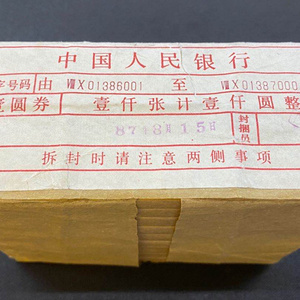 中国人民银行
字号码由ⅧX01386001至ⅧX01387000
壹圆券 壹仟张计壹仟圆整
87年8月15日 封捆员
拆封时请注意两侧事项